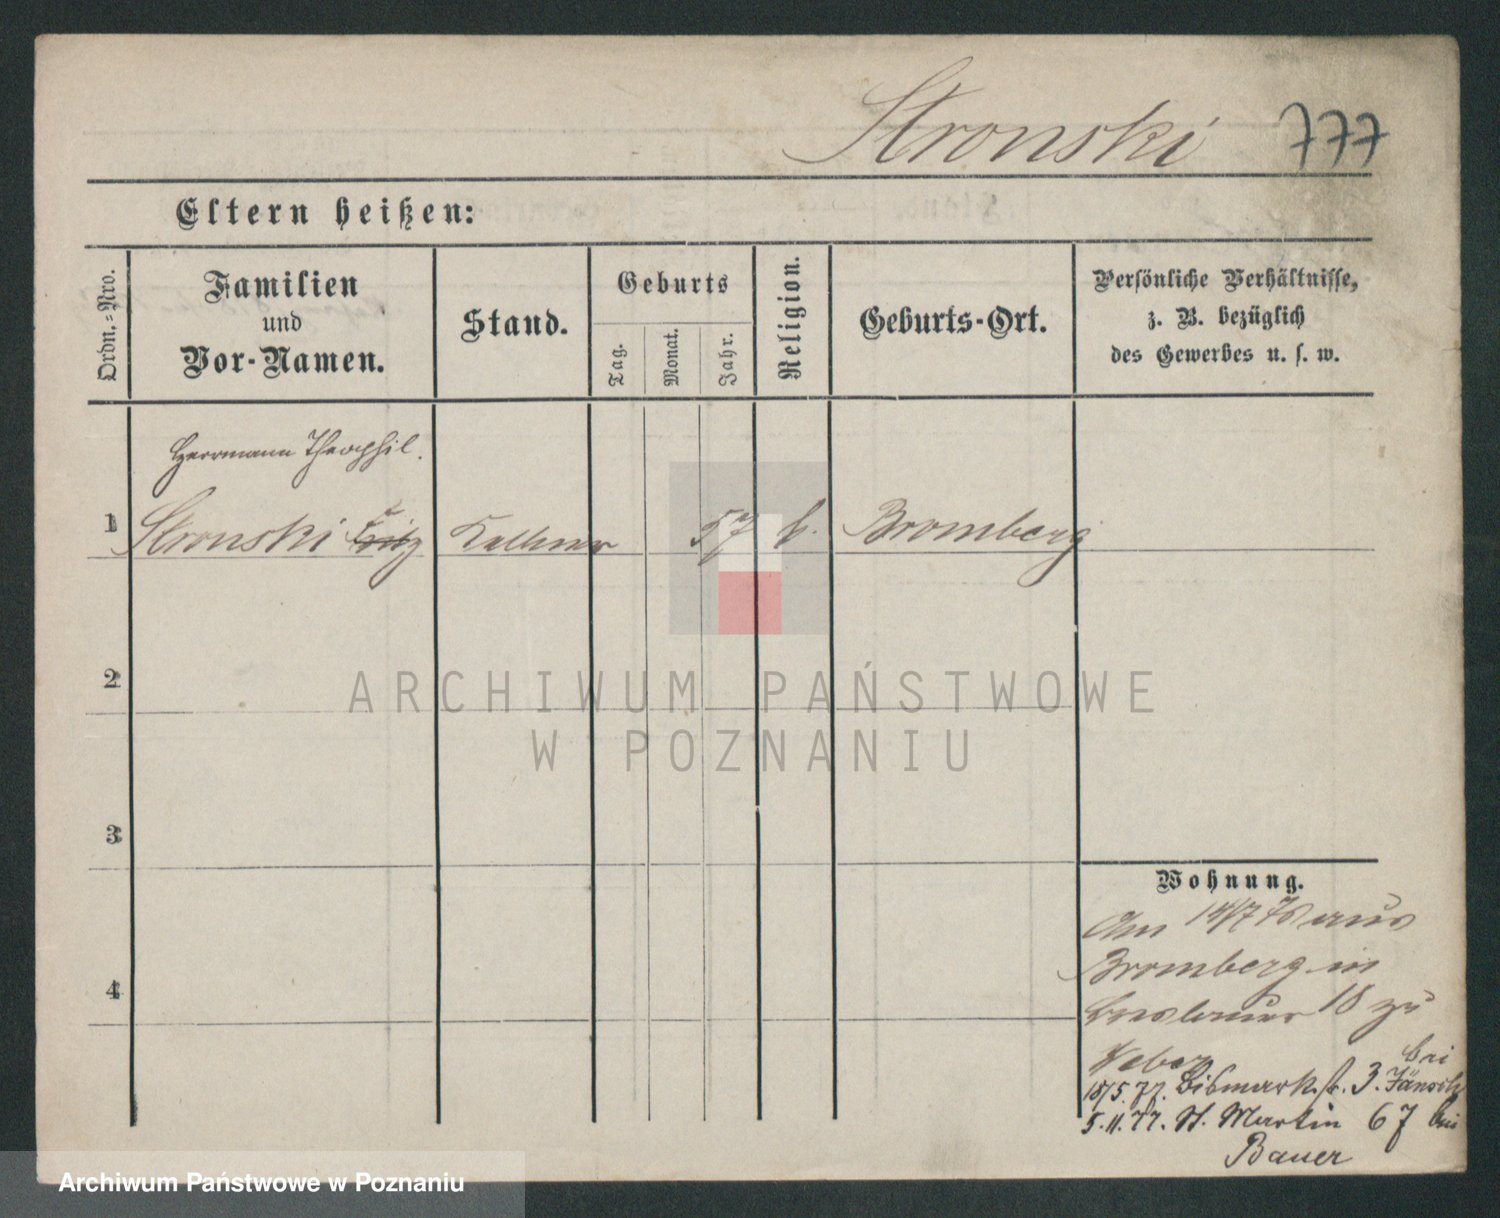 Stronski 777
Eltern heißen:
Ordn.-Nro.
Familien
und
Vor-Namen.
Stand.
Geburts
Tag.
Monat.
Jahr.
Religion.
Geburts-Ort.
Persönliche Verhältnisse,
z. B. bezüglich
des Gewerbes u. s. w.
Herrmann Theophil.
1 Stronski Fritz Kellner 57 k. Bromberg
2
3
4
ARCHIWUM PAŃSTWOWE
W POZNANIU
Wohnung.
Am 14/7 76 aus
Bromberg in
Breslauer 18 zu
Weber
bei
18/5. 77. Bismarckstr. 3. Jänsch
5.11.77. St. Martin 67 bei
Bauer
Archiwum Państwowe w Poznaniu